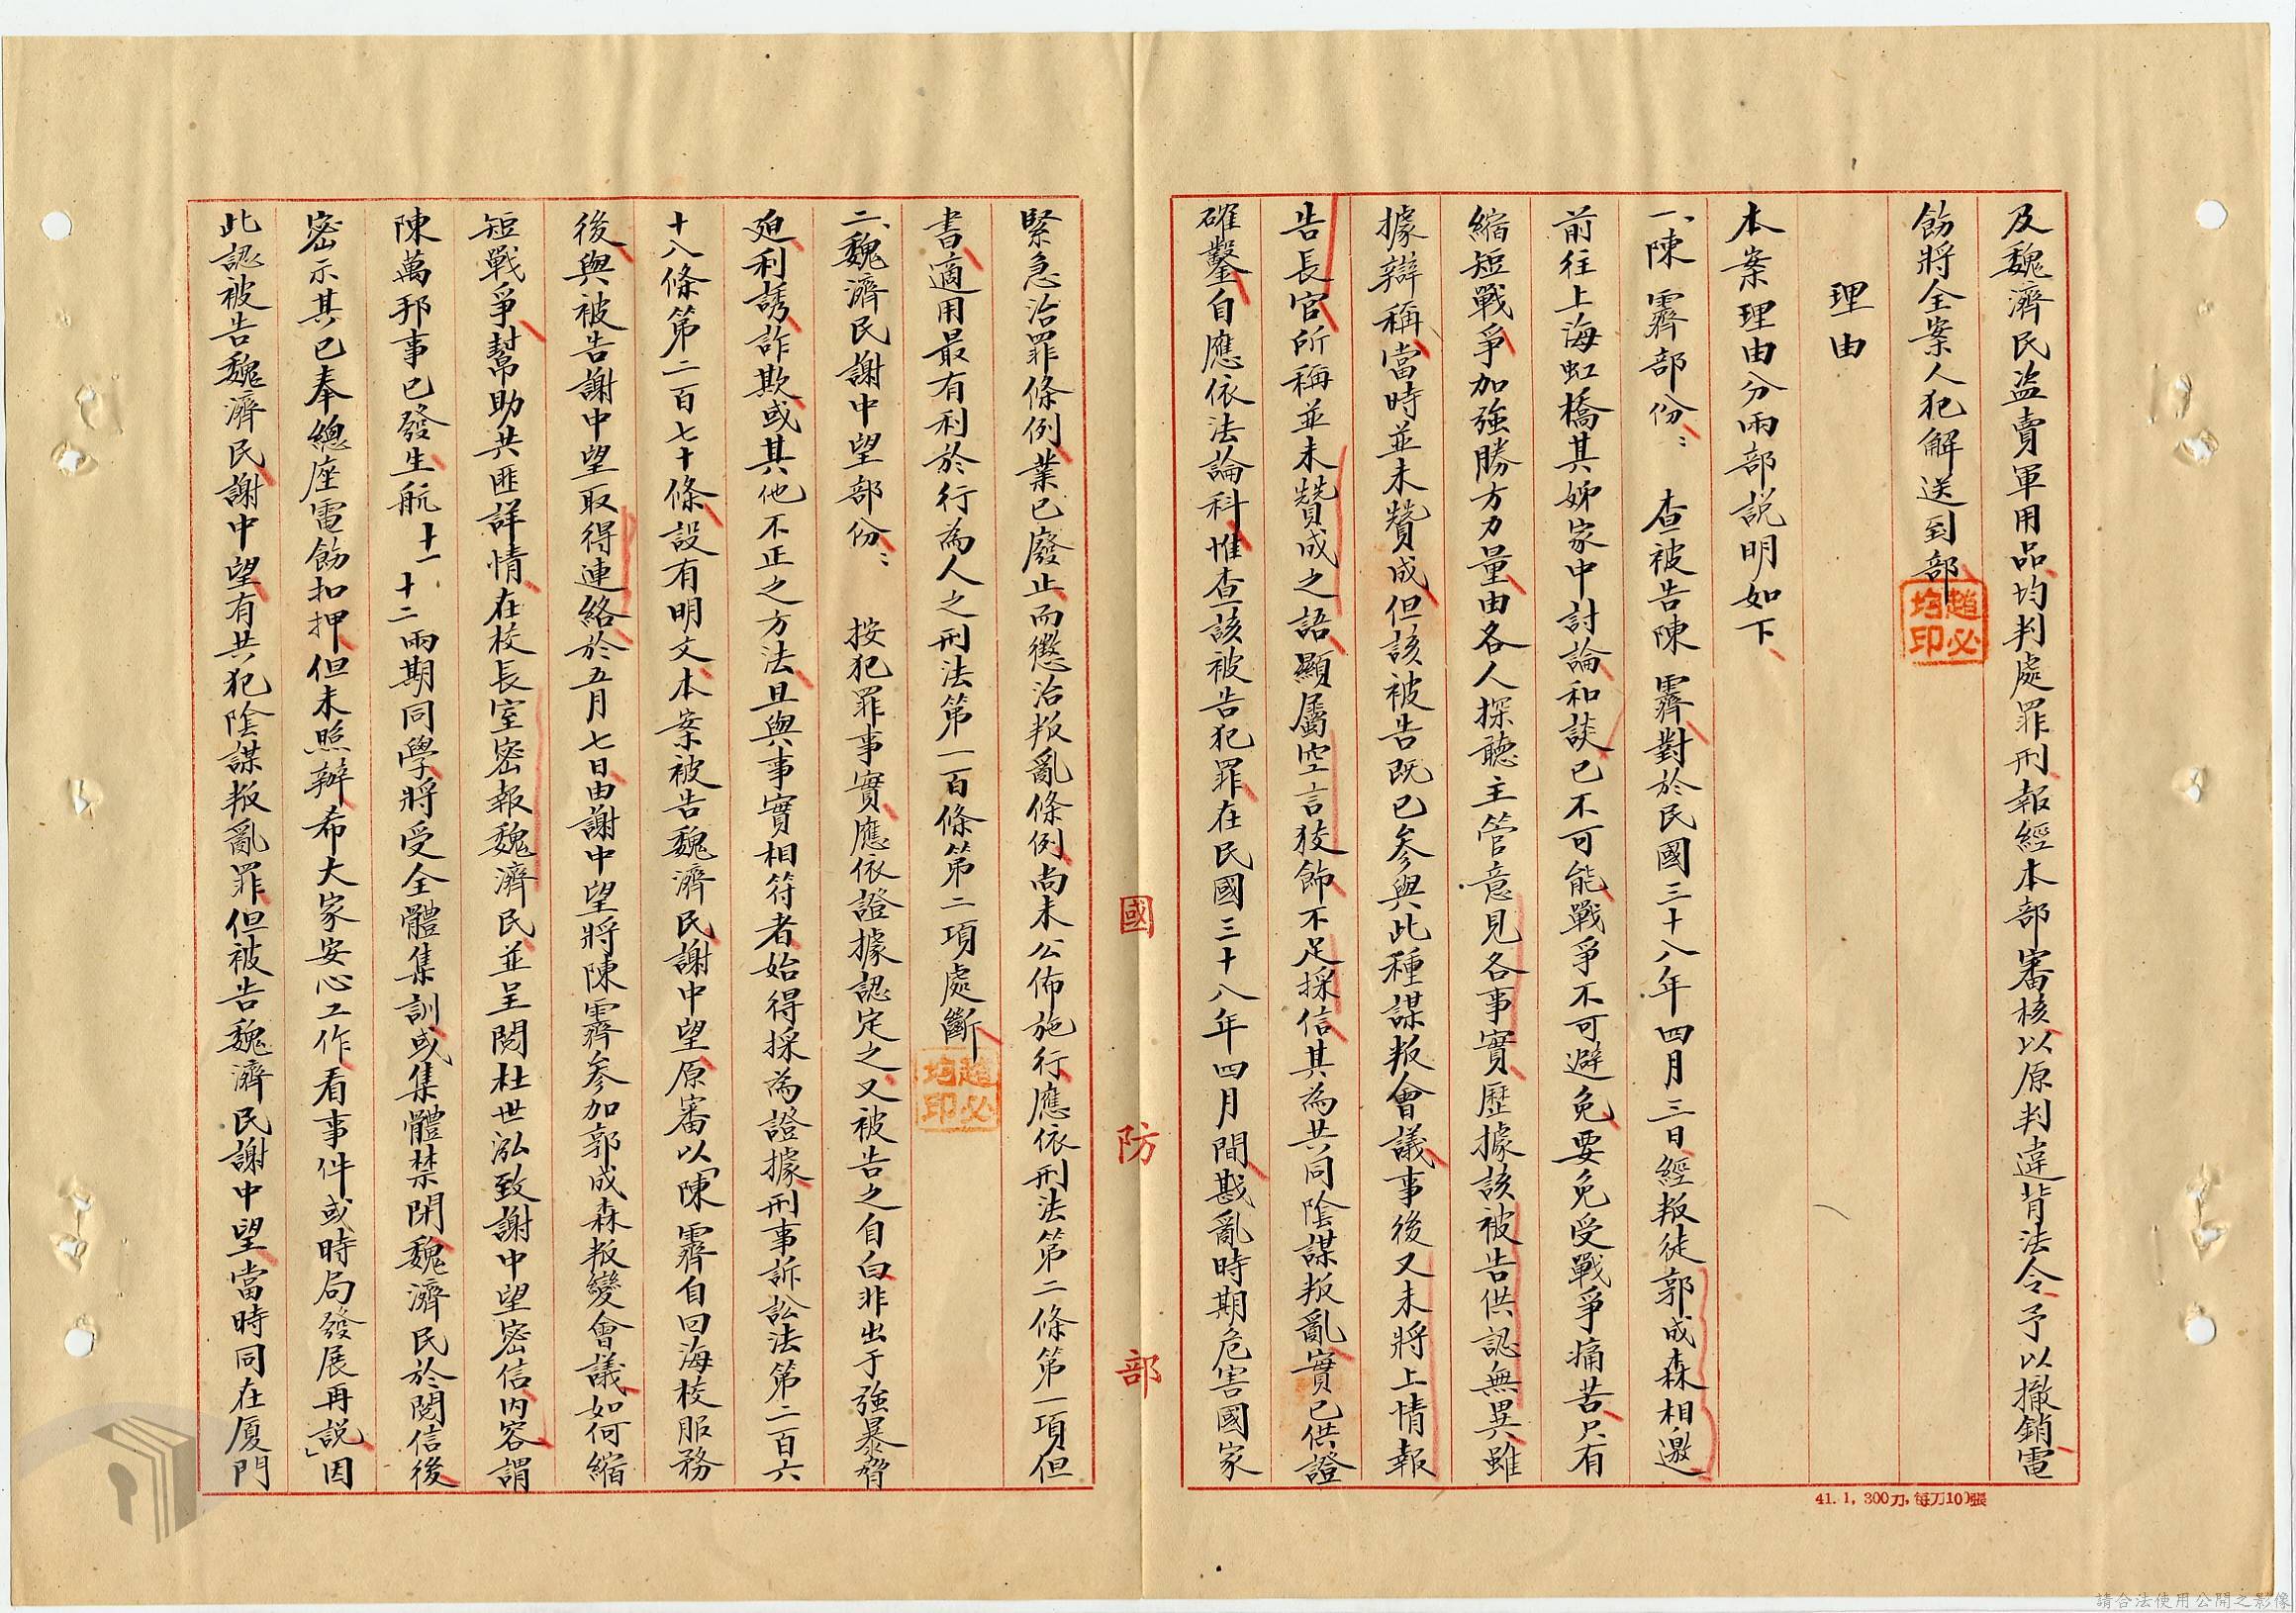 及魏濟民盜賣軍用品均判處罪刑報經本部審核以原判違背法令予以撤銷電
飭將全案人犯解送到部
趙必均印
理由
本案理由分兩部説明如下
一、陳霽部份：查被告陳霽對於民國三十八年四月三日經叛徒郭成森相邀
前往上海虹橋其姊家中討論和談已不可能戰爭不可避免要免受戰爭痛苦只有
縮短戰爭加強勝方力量由各人探聽主管意見各事實歷據該被告供認無異雖
據辯稱當時並未贊成但該被告既已參與此種謀叛會議事後又未將上情報
告長官所稱並未贊成之語顯屬空言狡飾不足採信其為共同陰謀叛亂實已供證
確鑿自應依法論科惟查該被告犯罪在民國三十八年四月間戡亂時期危害國家
41.1, 300刀,每刀100張
國防部
緊急治罪條例業已廢止而懲治叛亂條例尚未公佈施行應依刑法第二條第一項但
書適用最有利於行為人之刑法第一百條第二項處斷
趙必均印
二、魏濟民謝中望部份：按犯罪事實應依證據認定之又被告之自白非出于強暴脅
迫利誘詐欺或其他不正之方法且與事實相符者始得採為證據刑事訴訟法第二百六
十八條第二百七十條設有明文本案被告魏濟民謝中望原審以「陳霽自回海校服務
後與被告謝中望取得連絡於五月七日由謝中望將陳霽參加郭成森叛變會議如何縮
短戰爭幫助共匪詳情在校長室密報魏濟民並呈閱杜世泓致謝中望密信内容謂
陳萬邦事已發生航十一十二兩期同學將受全體集訓或集體禁閉魏濟民於閱信後
密示其已奉總座電飭扣押但未照辦希大家安心工作看事件或時局發展再説」因
此認被告魏濟民謝中望有共犯陰謀叛亂罪但被告魏濟民謝中望當時同在廈門
請合法使用公開之影像